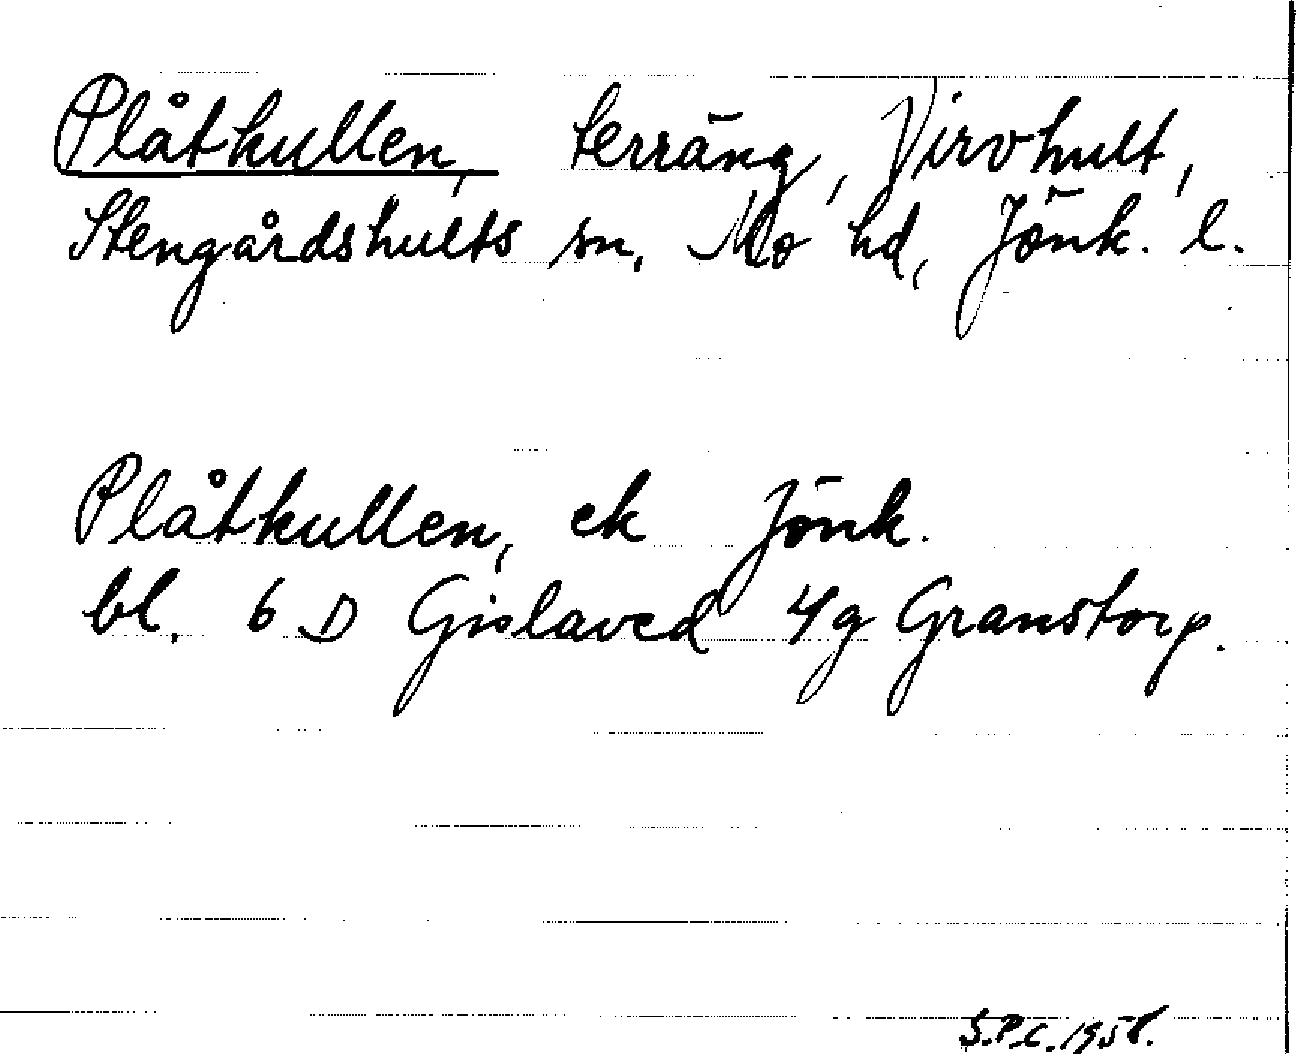 Plåtkullen, terräng, Virvhult,
Stengårdshults sn, Mo hd, Jönk. l.
Plåtkullen, ek Jönk.
bl. 6 D Gislaved 4g Granstorp.
S.P.C. 1958.